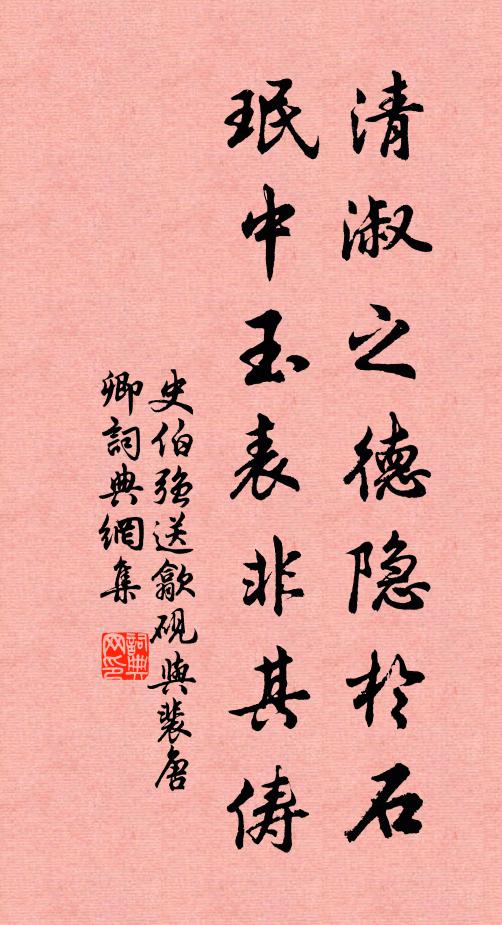 清淑之德隐於石
珉中玉表非其俦
史伯强送歙砚與裴唐
卿詞典網集
詞典网印